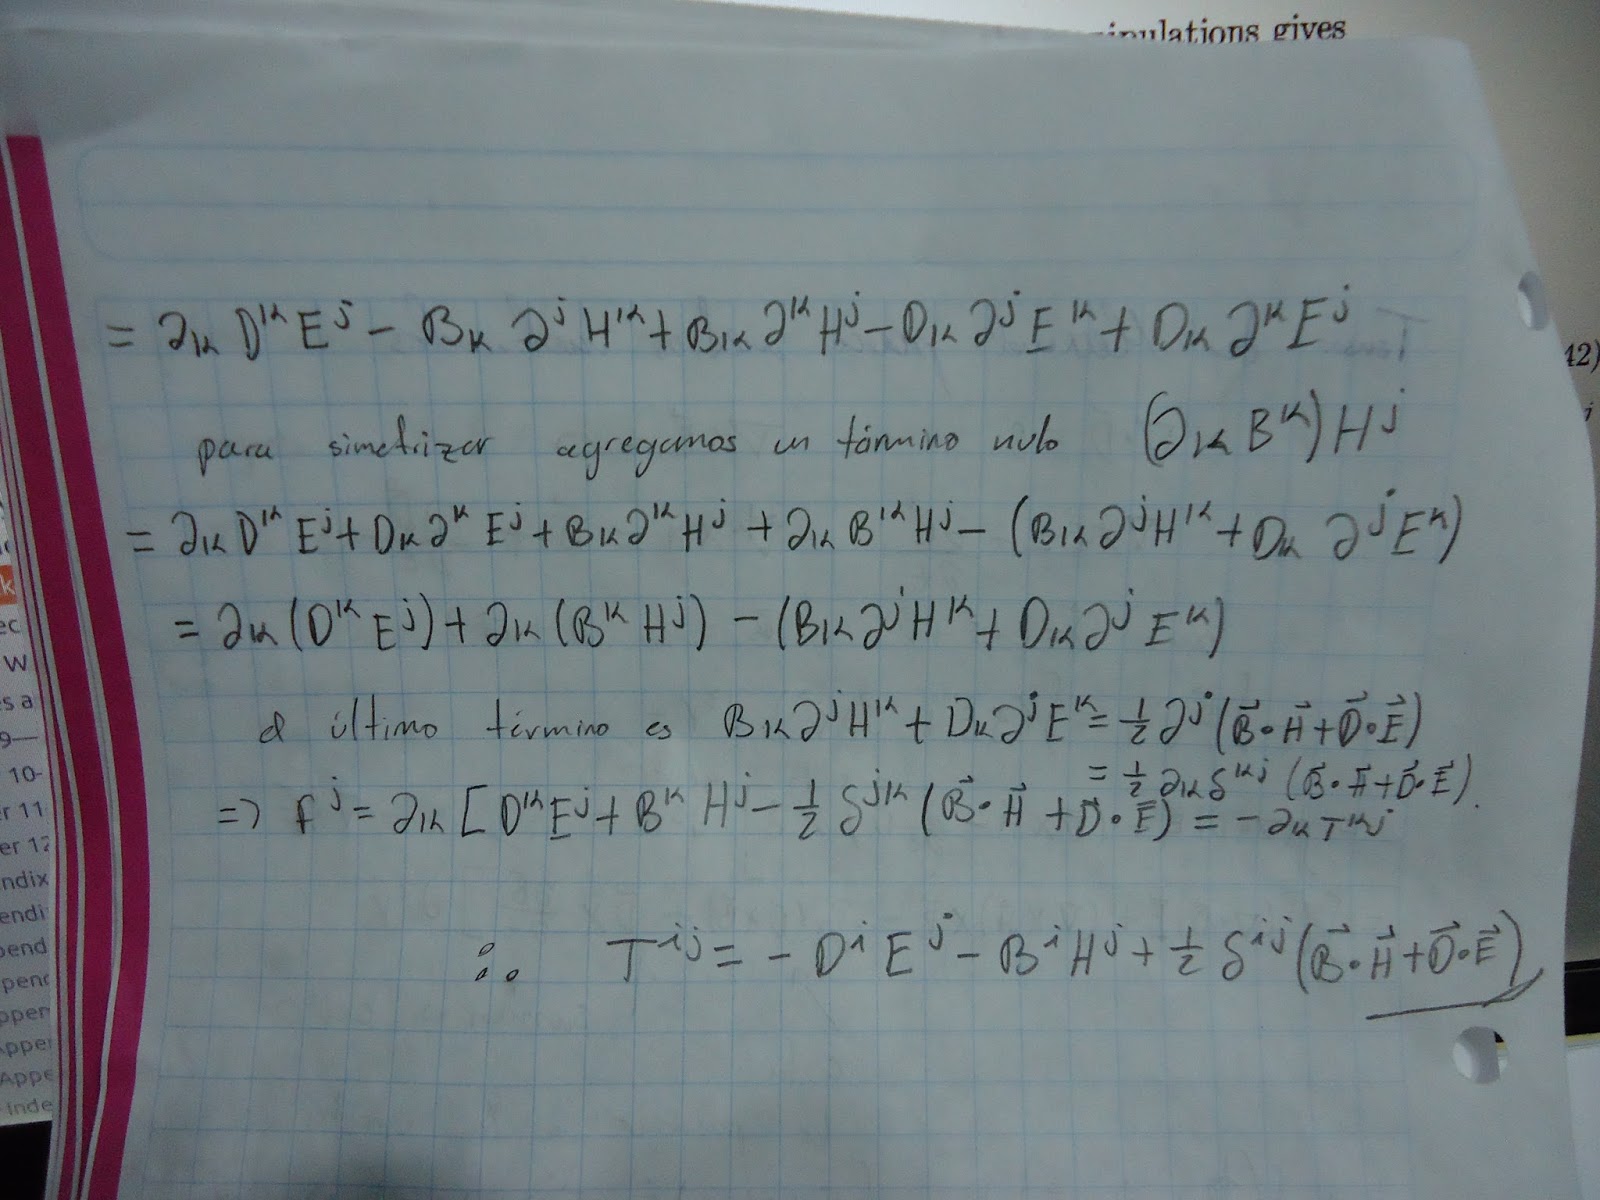 nipulations gives
= ∂ₖ DᵏEʲ − Bₖ ∂ʲ Hᵏ + Bₖ ∂ᵏ Hʲ − Dₖ ∂ʲ Eᵏ + Dₖ ∂ᵏ Eʲ
42)
para simetrizar agregamos un término nulo (∂ₖ Bᵏ) Hʲ
j
= ∂ₖ Dᵏ Eʲ + Dₖ ∂ᵏ Eʲ + Bₖ ∂ᵏ Hʲ + ∂ₖ Bᵏ Hʲ − (Bₖ ∂ʲ Hᵏ + Dₖ ∂ʲ Eᵏ)
= ∂ₖ (Dᵏ Eʲ) + ∂ₖ (Bᵏ Hʲ) − (Bₖ ∂ʲ Hᵏ + Dₖ ∂ʲ Eᵏ)
el último término es Bₖ ∂ʲ Hᵏ + Dₖ ∂ʲ Eᵏ = ½ ∂ʲ (B⃗ · H⃗ + D⃗ · E⃗)
= ½ ∂ₖ δᵏʲ (B⃗ · H⃗ + D⃗ · E⃗).
=> fʲ = ∂ₖ [ Dᵏ Eʲ + Bᵏ Hʲ − ½ δʲᵏ (B⃗ · H⃗ + D · E) = − ∂ₖ Tᵏʲ
∴ Tⁱʲ = − Dⁱ Eʲ − Bⁱ Hʲ + ½ δⁱʲ (B⃗ · H⃗ + D⃗ · E⃗)
k
ec
W
s a
9—
10-
r 11
er 12
ndix
endi
pend
pend
ppen
Appe
Appe
Inde